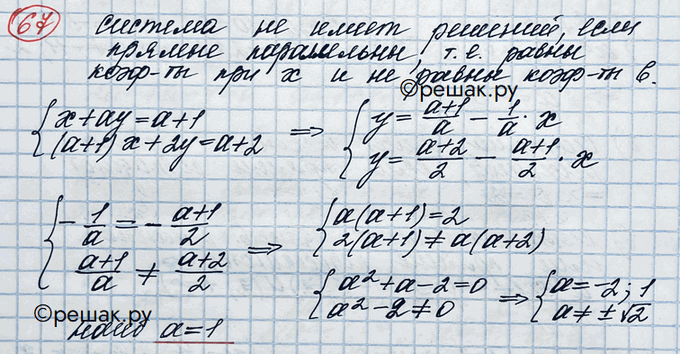 67 система не имеет решений, если
прямые параллельны, т.е. равны
коэф-ты при x и не равны коэф-ты b.
©решак.ру
{ x+ay=a+1
(a+1)x+2y=a+2 ⇒ { y= (a+1)/a − 1/a · x
y= (a+2)/2 − (a+1)/2 · x
{ −1/a = −(a+1)/2
(a+1)/a ≠ (a+2)/2 ⇒ { a(a+1)=2
2(a+1)≠a(a+2)
{ a²+a−2=0
a²−2≠0 ⇒ { a=−2; 1
a≠±√2
©решак.ру
a=1